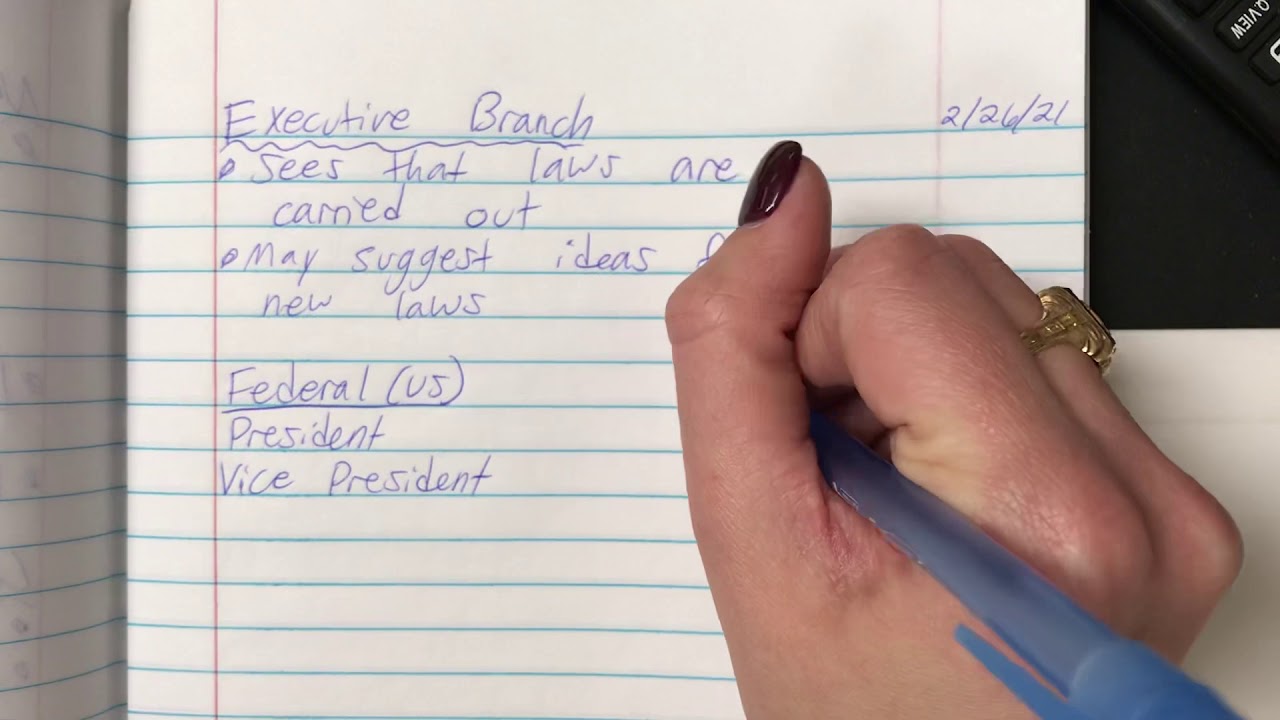 Executive Branch 2/26/21
• Sees that laws are
carried out
• May suggest ideas
new laws
Federal (US)
President
Vice President
Q.VIEW